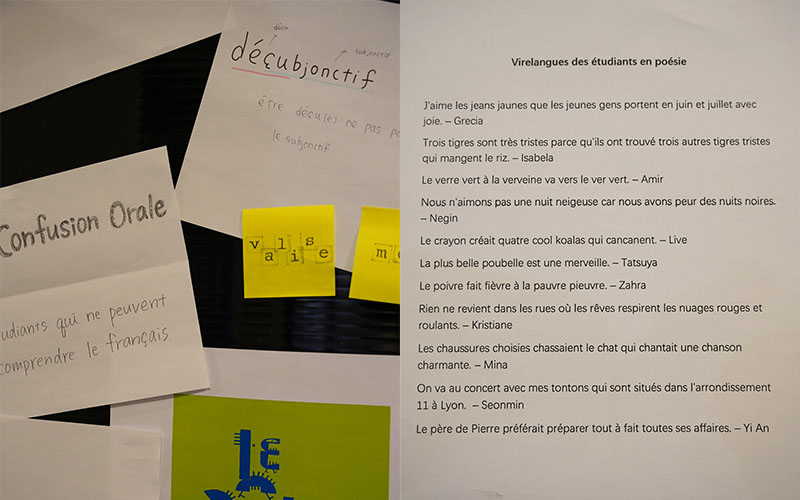 déçu
subjonctif
déçubjonctif
être déçu(e) ne pas
le subjonctif
valise
Confusion Orale
qui ne peuvent
comprendre le français
Virelangues des étudiants en poésie
J'aime les jeans jaunes que les jeunes gens portent en juin et juillet avec
joie. – Grecia
Trois tigres sont très tristes parce qu'ils ont trouvé trois autres tigres tristes
qui mangent le riz. – Isabela
Le verre vert à la verveine va vers le ver vert. – Amir
Nous n'aimons pas une nuit neigeuse car nous avons peur des nuits noires.
– Negin
Le crayon créait quatre cool koalas qui cancanent. – Live
La plus belle poubelle est une merveille. – Tatsuya
Le poivre fait fièvre à la pauvre pieuvre. – Zahra
Rien ne revient dans les rues où les rêves respirent les nuages rouges et
roulants. – Kristiane
Les chaussures choisies chassaient le chat qui chantait une chanson
charmante. – Mina
On va au concert avec mes tontons qui sont situés dans l'arrondissement
11 à Lyon. – Seonmin
Le père de Pierre préférait préparer tout à fait toutes ses affaires. – Yi An